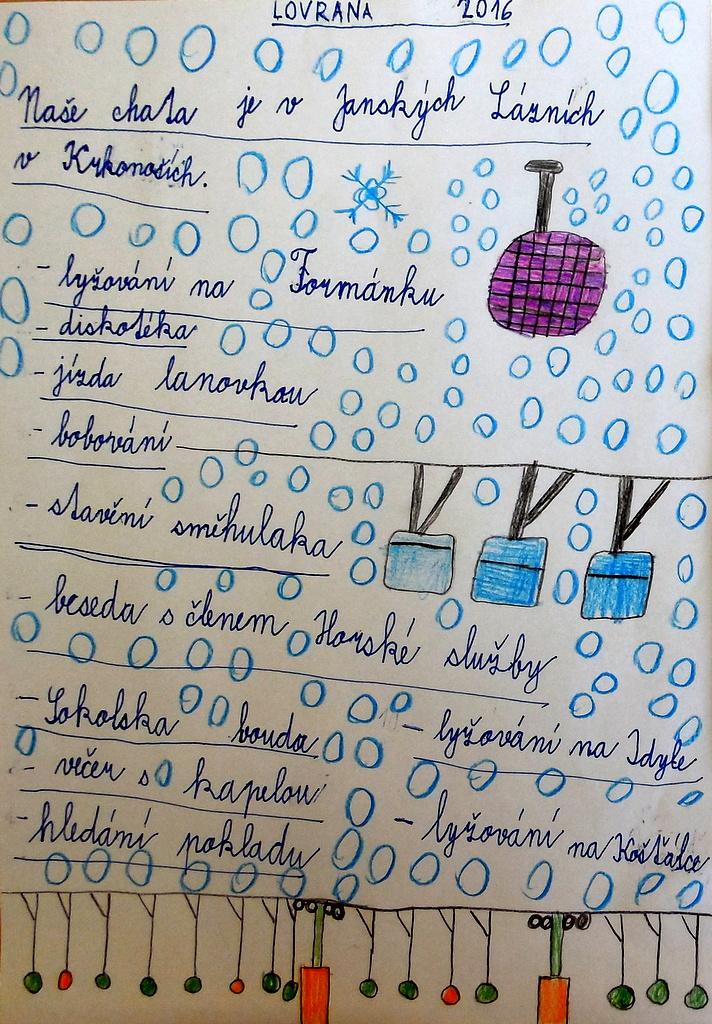 LOVRANA 2016
Naše chata je v Janských Lázních
v Krkonoších.
- lyžování na Formánku
- diskotéka
- jízda lanovkou
- bobování
- stavění sněhulaka
- beseda s členem Horské služby
- Sokolska bouda
- večer s kapelou
- hledání pokladu
- lyžování na Idyle
- lyžování na Košťálce